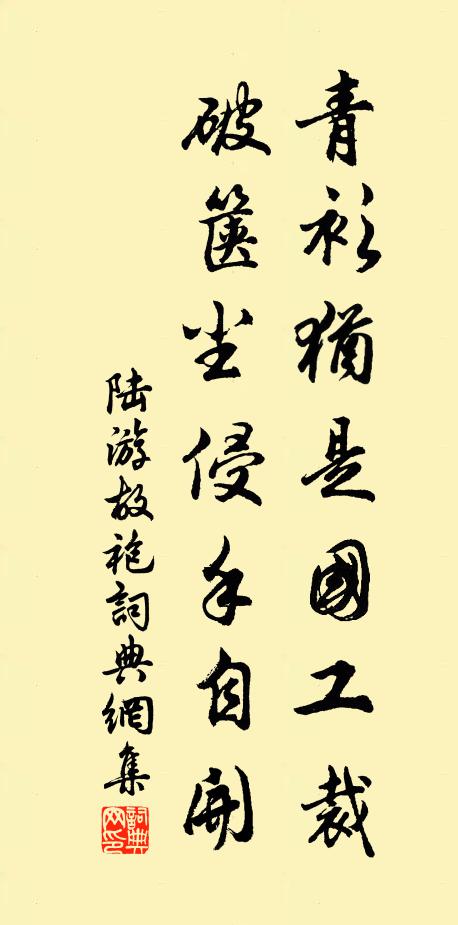 青衫猶是國工裁
破篋尘侵手自開
陆游故袍詞典網集
詞典网印